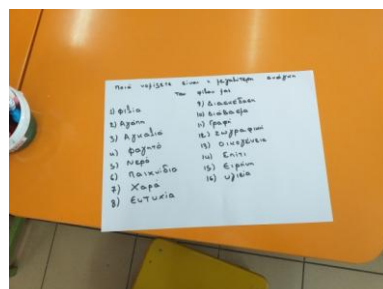 Ποιά νομίζετε είναι η μεγαλύτερη ανάγκη
των φίλων μας
1) Φιλία
2) Αγάπη
3) Αγκαλιά
4) Φαγητό
5) Νερό
6) Παιχνίδια
7) Χαρά
8) Ευτυχία
9) Διασκέδαση
10) Διάβασμα
11) Γραφή
12) Ζωγραφική
13) Οικογένεια
14) Σπίτι
15) Ειρήνη
16) υγεία